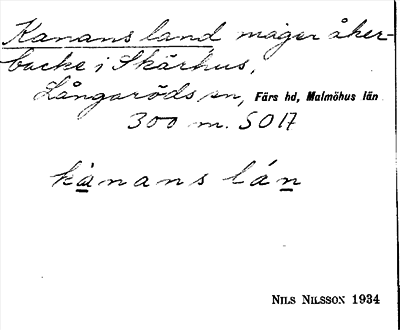 Kanans land mager åker-
backe i Skärhus,
Långaröds sn, Färs hd, Malmöhus län
300 m. SO 17
kànans lán
NILS NILSSON 1934